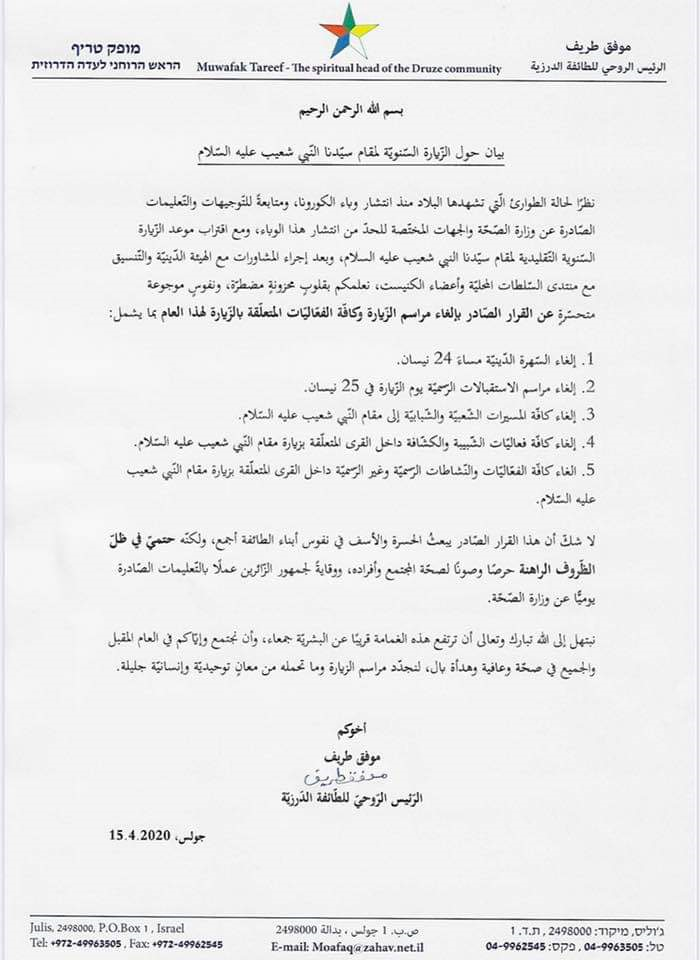 מופק טריף
הראש הרוחני לעדה הדרוזית
Muwafak Tareef - The spiritual head of the Druze community
موفق طريف
الرئيس الروحي للطائفة الدرزية
بسم الله الرحمن الرحيم
بيان حول الزّيارة السّنويّة لمقام سيّدنا النّبي شعيب عليه السّلام
نظرًا لحالة الطوارئ الّتي تشهدها البلاد منذ انتشار وباء الكورونا، ومتابعةً للتّوجيهات والتّعليمات
الصّادرة عن وزارة الصّحّة والجهات المختّصة للحدّ من انتشار هذا الوباء، ومع اقتراب موعد الزّيارة
السّنوية التّقليدية لمقام سيّدنا النبي شعيب عليه السلام، وبعد إجراء المشاورات مع الهيئة الدّينيّة والتّنسيق
مع منتدى السّلطات المحليّة وأعضاء الكنيست، نعلمكم بقلوبٍ محزونةٍ مضطرّة، ونفوسٍ موجوعة
متحسّرةٍ عن القرار الصّادر بإلغاء مراسم الزّيارة وكافّة الفعّاليّات المتعلّقة بالزّيارة لهذا العام بما يشمل:
1. إلغاء السّهرة الدّينيّة مساءَ 24 نيسان.
2. إلغاء مراسم الاستقبالات الرّسميّة يوم الزّيارة في 25 نيسان.
3. إلغاء كافّة المسيرات الشّعبيّة والشّبابيّة إلى مقام النّبي شعيب عليه السّلام.
4. إلغاء كافة فعاليّات الشّبيبة والكشافة داخل القرى المتعلّقة بزيارة مقام النّبي شعيب عليه السّلام.
5. الغاء كافّة الفعّاليّات والنّشاطات الرّسميّة وغير الرّسميّة داخل القرى المتعلّقة بزيارة مقام النّبي شعيب
عليه السّلام.
لا شكّ أن هذا القرار الصّادر يبعثُ الحسرة والأسف في نفوس أبناء الطائفة أجمع، ولكنّه حتميّ في ظلّ
الظّروف الراهنة حرصًا وصونًا لصحّة المجتمع وأفراده، ووقايةً لجمهور الزّائرين عملًا بالتّعليمات الصّادرة
يوميًّا عن وزارة الصّحّة.
نبتهل إلى الله تبارك وتعالى أن ترتفع هذه الغمامة قريبًا عن البشريّة جمعاء، وأن نجتمع وإيّاكم في العام المقبل
والجميع في صحّة وعافية وهدأة بال، لنجدّد مراسم الزيارة وما تحمله من معانٍ توحيديّة وإنسانيّة جليلة.
أخوكم
موفق طريف
موفق طريف
الرّئيس الرّوحيّ للطّائفة الدّرزيّة
جولس، 15.4.2020
Julis, 2498000, P.O.Box 1 , Israel
Tel: +972-49963505 , Fax: +972-49962545
ص.ب. 1 جولس ، بدالة 2498000
E-mail: Moafaq@zahav.net.il
ג'וליס, מיקוד: 2498000 , ת.ד. 1
טל: 04-9963505 , פקס: 04-9962545